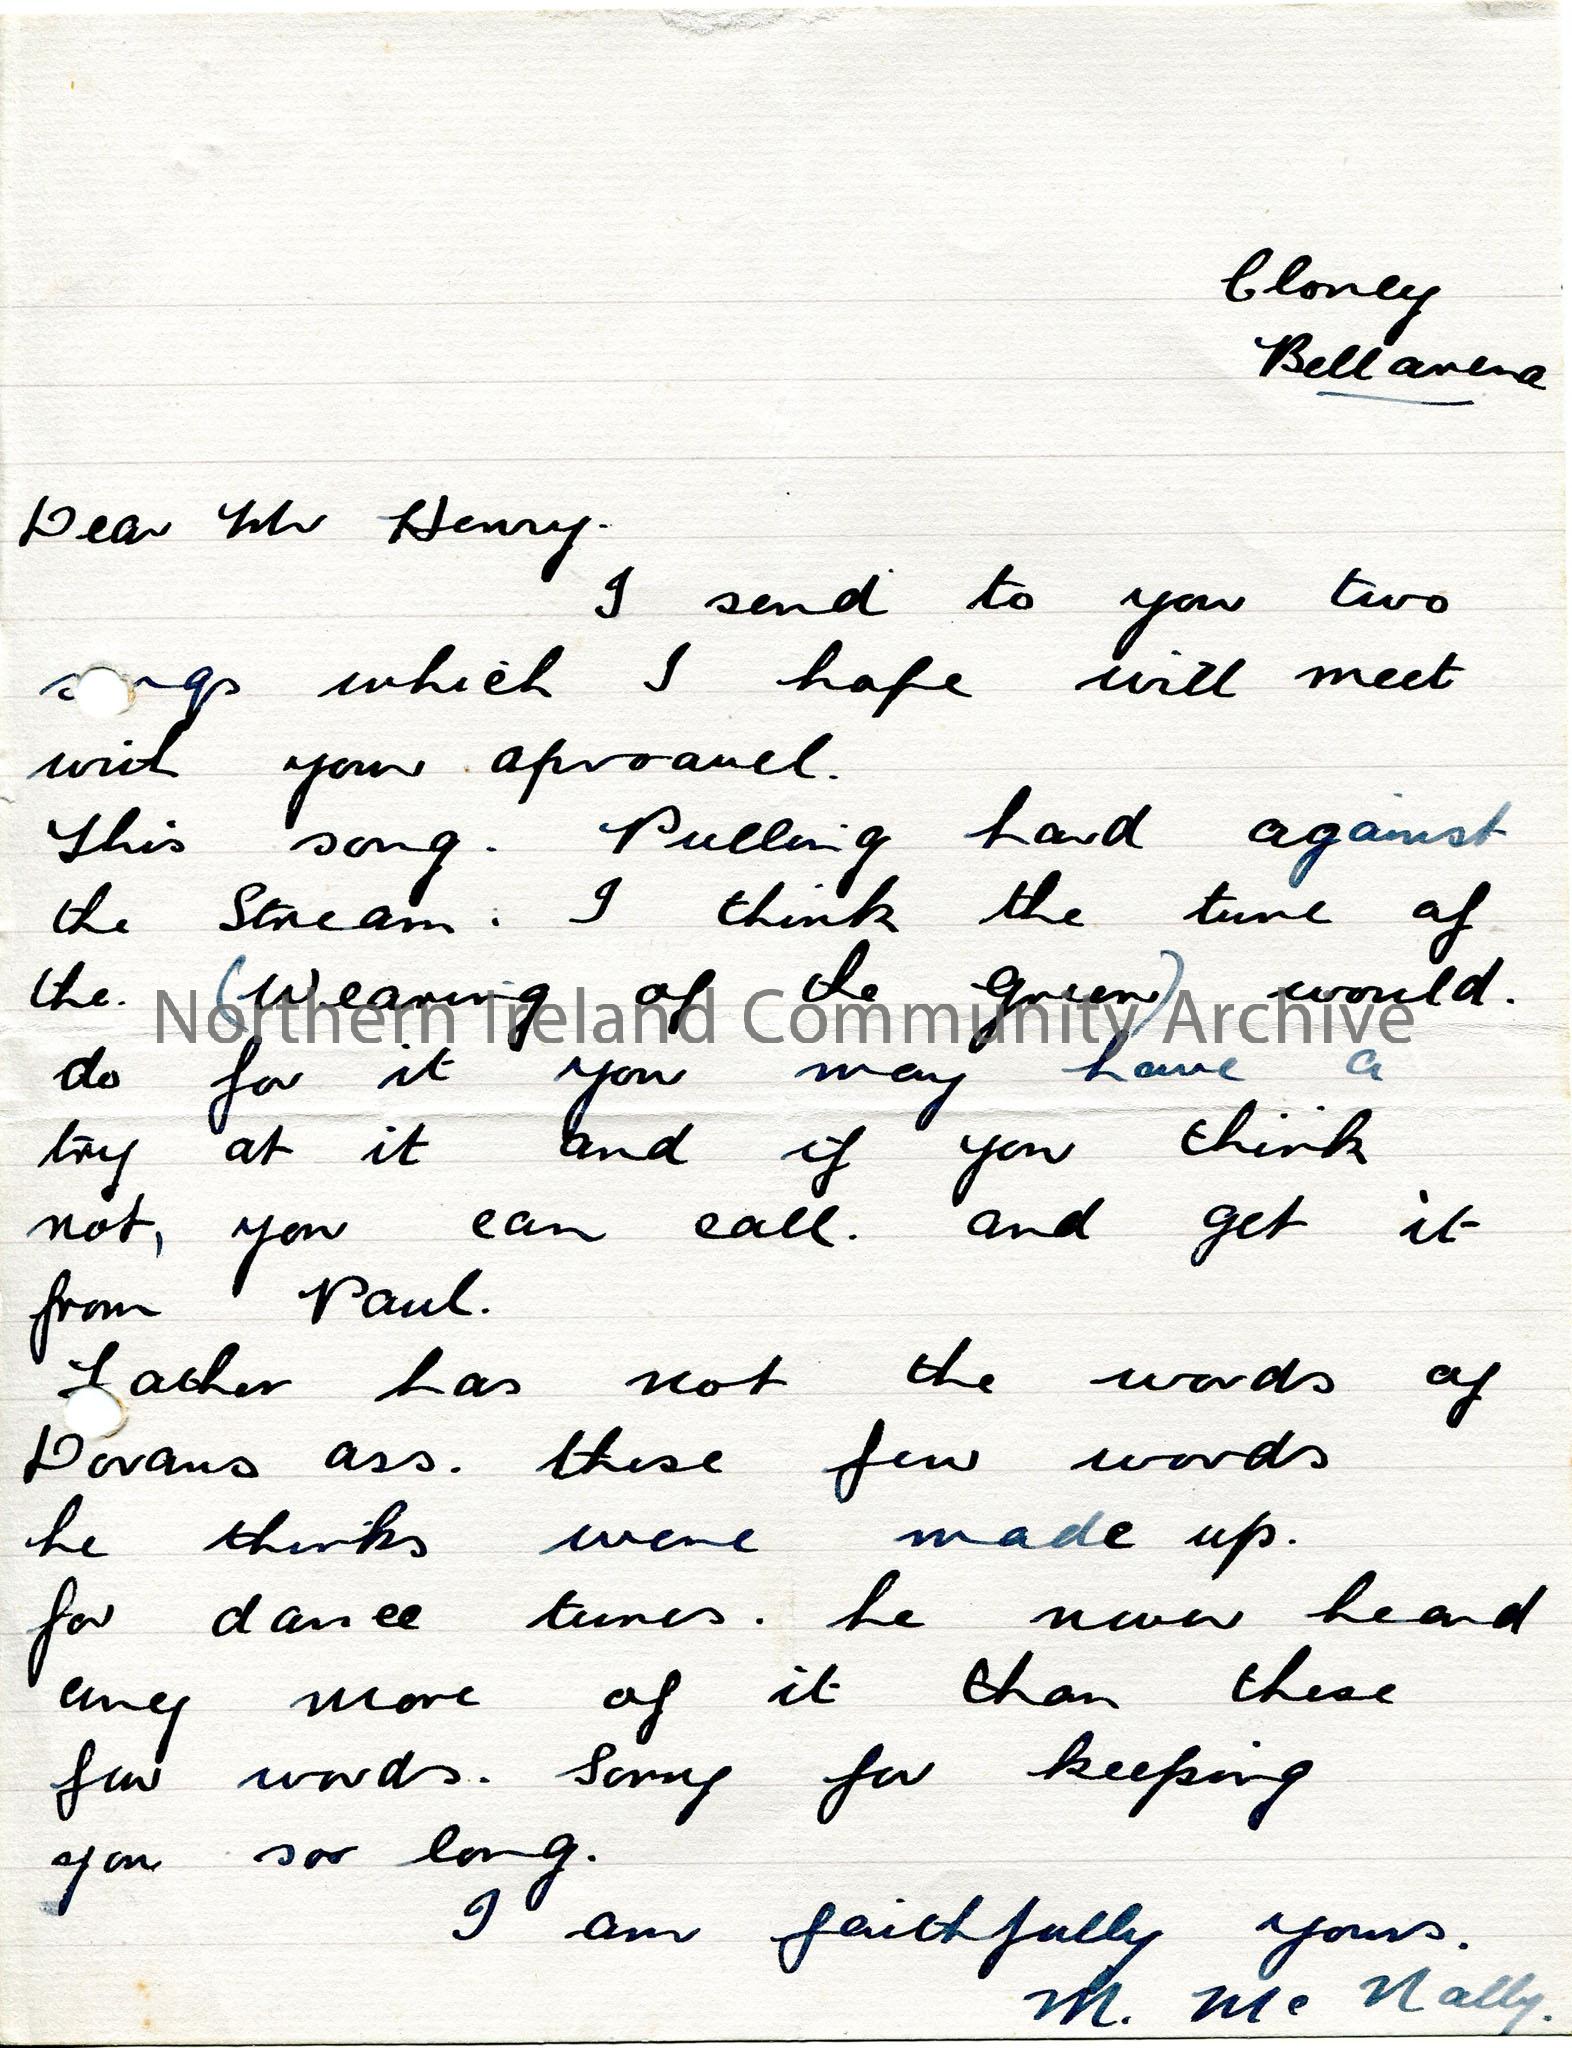 Cloney
Bellarena
Dear Mr Henry.
I send to you two
songs which I hope will meet
with your aproavel.
This song. Pulling hard against
the Stream. I think the tune of
the. (Wearing of the green) would.
Northern Ireland Community Archive
do for it you may have a
try at it and if you think
not, you can call. and get it
from Paul.
Father has not the words of
Dorans ass. these few words
he thinks were made up.
for dance tunes. he never heard
any more of it than these
few words. Sorry for keeping
you soo long.
I am faithfully yours.
M. Mc Nally.